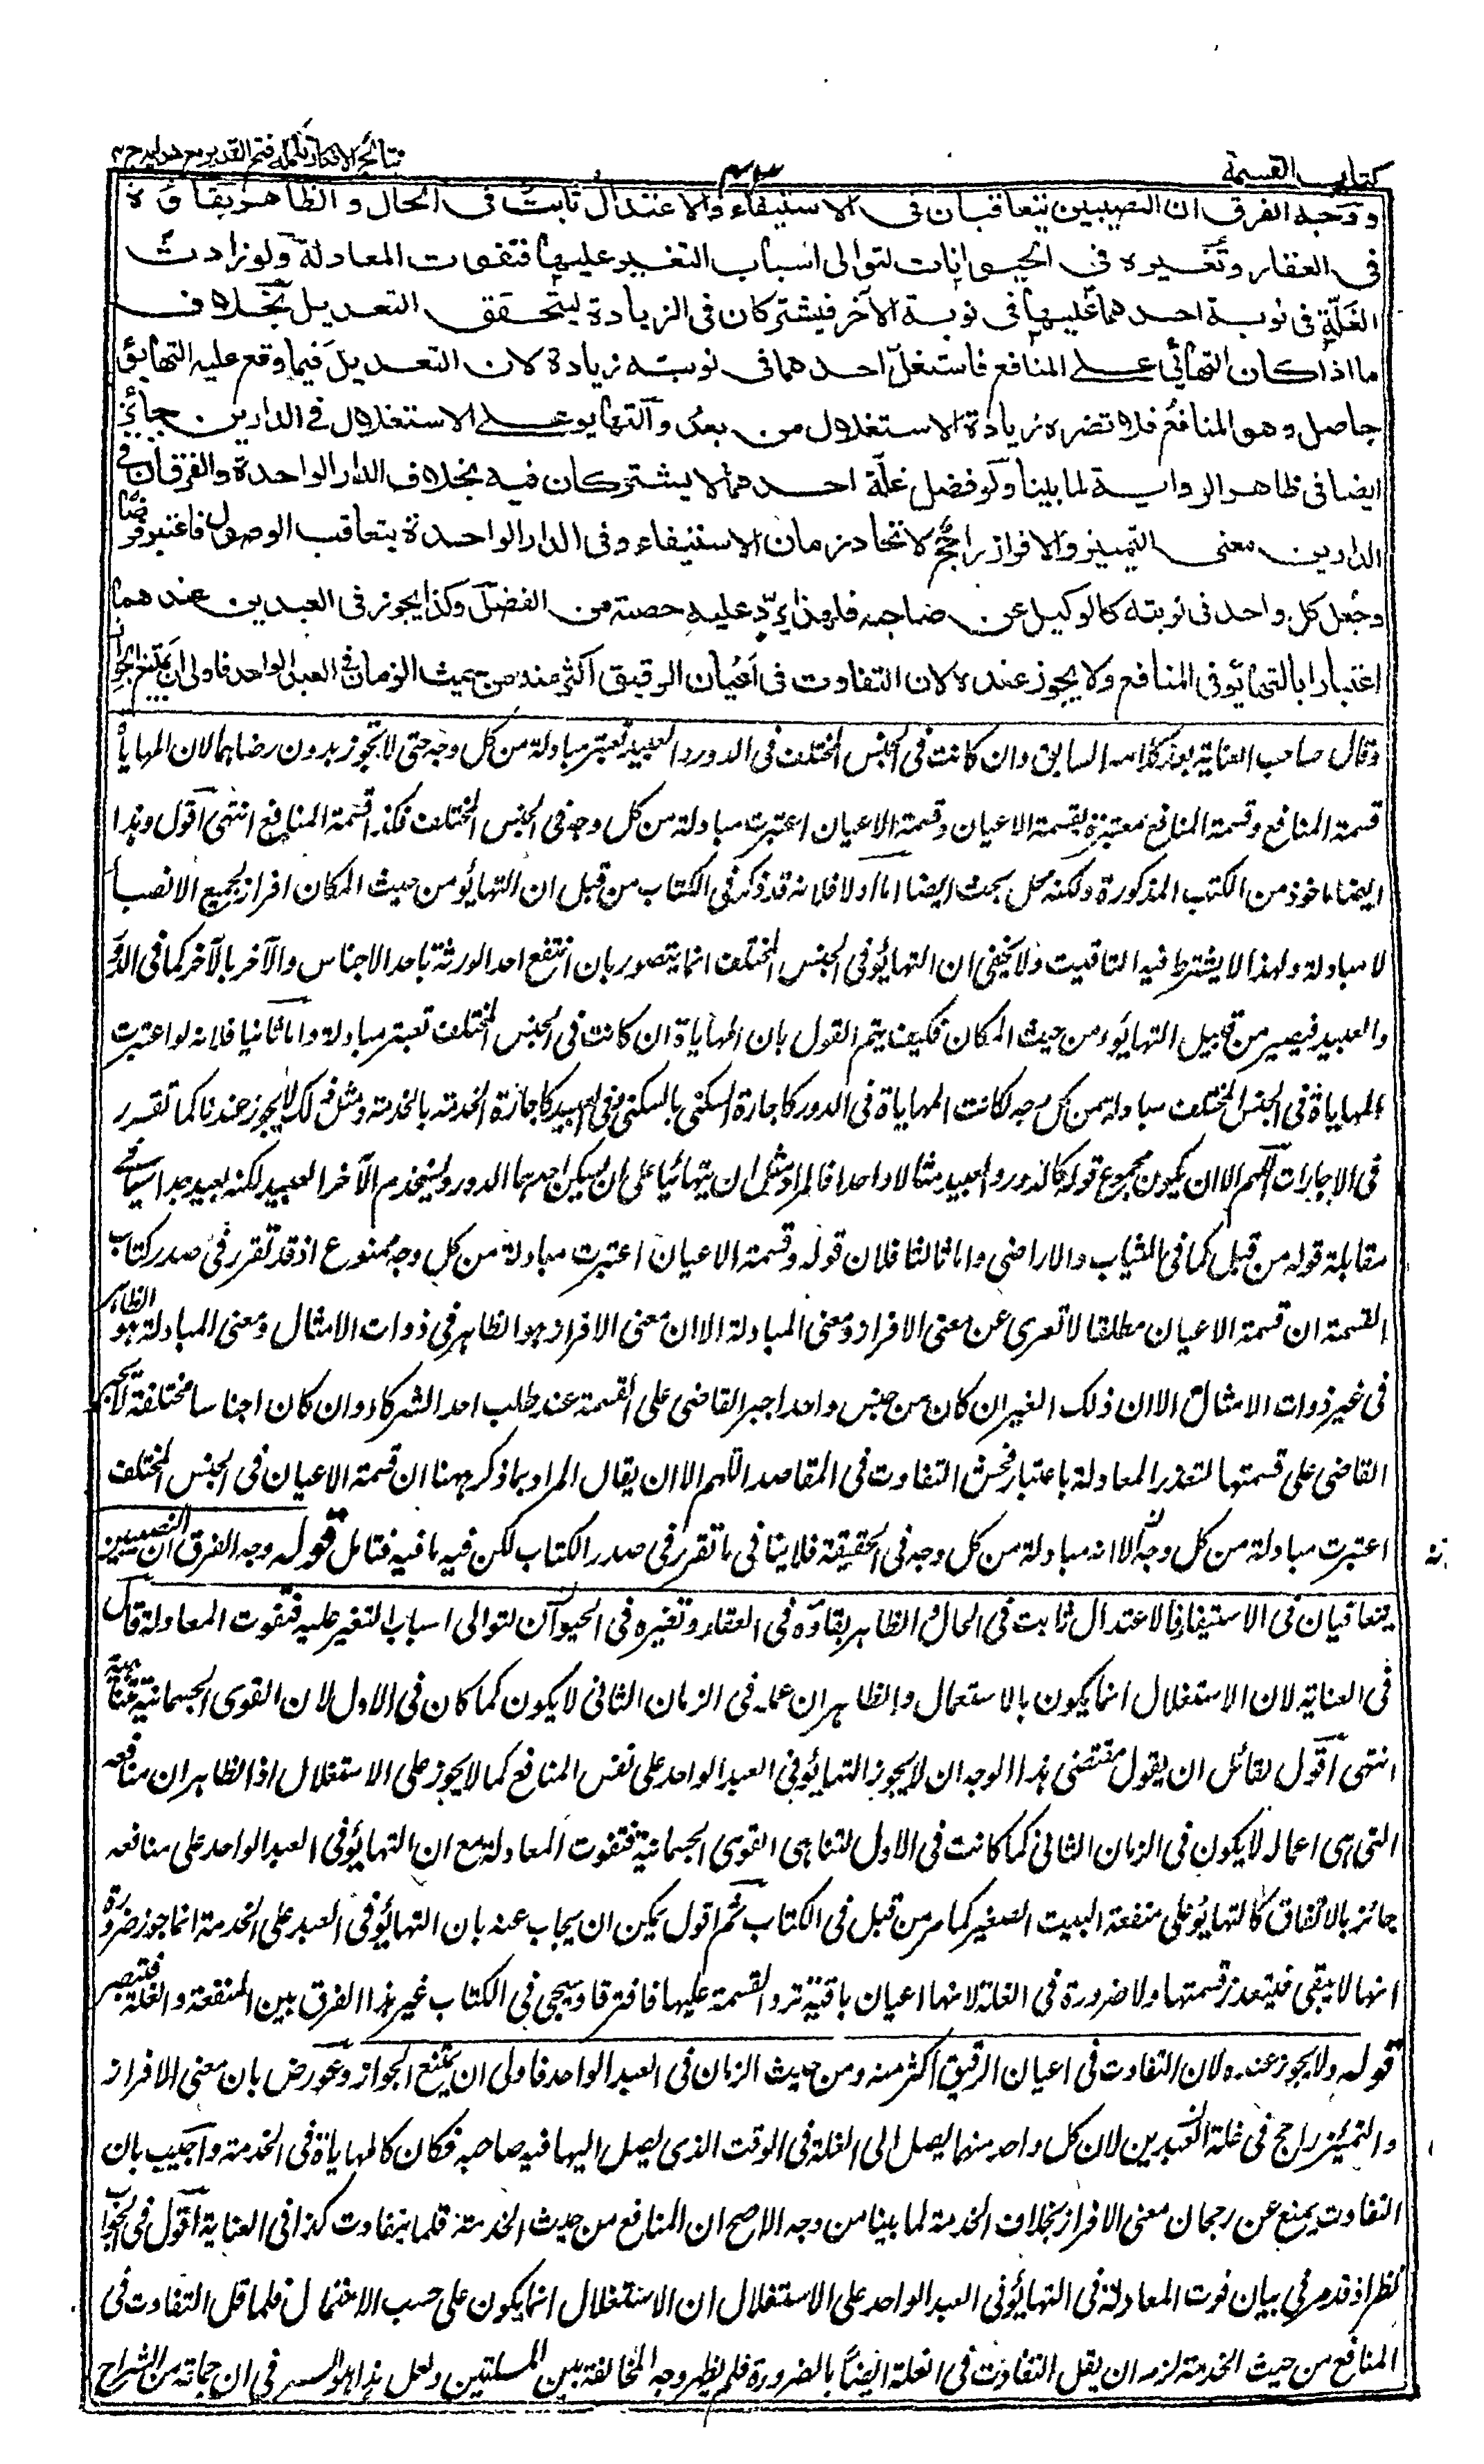 كتاب القسمة
نتائج الافكار تكملة فتح القدير مع هداية ج ٤
ووجه الفرق ان النصيبين يتعاقبان في الاستيفاء والاعتدال ثابت في الحال والظاهر بقاؤه
في العقار وتغيره في الحيوانات لتوالى اسباب التغير عليها فتفوت المعادلة ولو زادت
الغلة في نوبة احدهما عليها في نوبة الآخر فيشتركان في الزيادة ليتحقق التعديل بخلاف
ما اذا كان التهائى على المنافع فاستغل احدهما في نوبته زيادة لان التعديل فيما وقع عليه التهايؤ
حاصل وهو المنافع فلا تضره زيادة الاستغلال من بعد والتهايؤ على الاستغلال في الدارين جائز
ايضا في ظاهر الرواية لما بينا ولو فضل غلة احدهما لا يشتركان فيه بخلاف الدار الواحدة والفرق ان في
الدارين معنى التمييز والافراز راجح لاتحاد زمان الاستيفاء وفي الدار الواحدة يتعاقب الوصول فاعتبر قرضا
وجعل كل واحد في نوبته كالوكيل عن صاحبه فلهذا يرد عليه حصته من الفضل وكذا يجوز في العبدين عندهما
اعتبارا بالتهايؤ في المنافع ولا يجوز عنده لان التفاوت في اعيان الرقيق اكثر منه من حيث الزمان في العبد الواحد فاولى ان يمتنع الجواز
وقال صاحب العناية بعد كلامه السابق وان كانت في الجنس المختلف في الدور والعبيد تعتبر مبادلة من كل وجه حتى لا تجوز بدون رضاهما لان المهاياة
قسمة المنافع وقسمة المنافع معتبرة بقسمة الاعيان وقسمة الاعيان اعتبرت مبادلة من كل وجه في الجنس المختلف فكذا قسمة المنافع انتهى اقول وهذا
ايضا ماخوذ من الكتب المذكورة ولكنه محل بحث ايضا اما اولا فلانه قد ذكر في الكتاب من قبل ان التهايؤ من حيث المكان افراز لجميع الانصبا
لا مبادلة ولهذا لا يشترط فيه التاقيت ولا يخفى ان التهايؤ في الجنس المختلف انما يتصور بان انتفع احد الورثة باحد الاجناس والآخر بالآخر كما في الدور
والعبيد فيصير من قبيل التهايؤ من حيث المكان فكيف يتم القول بان المهاياة ان كانت في الجنس المختلف تعتبر مبادلة واما ثانيا فلانه لو اعتبرت
المهاياة في الجنس المختلف مبادلة من كل وجه لكانت المهاياة في الدور كاجارة السكنى بالسكنى وفي العبيد كاجازة الخدمة بالخدمة ومثل ذلك لا يجوز عندنا كما تقرر
في الاجارات اللهم الا ان يكون مجموع قوله كالدور والعبيد مثالا واحدا فالمراد مثل ان يتهائيا على ان يسكن احدهما الدور ويستخدم الآخر العبيد لكنه بعيد جدا سيما في
مقابلة قوله من قبل كما في الثياب والاراضي واما ثالثا فلان قوله وقسمة الاعيان اعتبرت مبادلة من كل وجه ممنوع اذ قد تقرر في صدر كتاب
القسمة ان قسمة الاعيان مطلقا لا تعرى عن معنى الافراز ومعنى المبادلة الا ان معنى الافراز هو الظاهر في ذوات الامثال ومعنى المبادلة هو الظاهر
في غير ذوات الامثال الا ان ذلك الغير ان كان من جنس واحد اجبر القاضى على القسمة عند طلب احد الشركاء وان كان اجناسا مختلفة لا يجبر
القاضى على قسمتها لتعذر المعادلة باعتبار فحش التفاوت في المقاصد اللهم الا ان يقال المراد بما ذكر ههنا ان قسمة الاعيان في الجنس المختلف
اعتبرت مبادلة من كل وجه لا انه مبادلة من كل وجه في الحقيقة فلا ينافى ما تقرر في صدر الكتاب لكن فيه ما فيه فتامل قوله وجه الفرق ان النصيبين
يتعاقبان في الاستيفاء فالاعتدال ثابت في الحال والظاهر بقاؤه في العقار وتغيره في الحيوان لتوالى اسباب التغير عليه فتفوت المعادلة قال
في العناية لان الاستغلال انما يكون بالاستعمال والظاهر ان عمله في الزمان الثانى لا يكون كما كان في الاول لان القوى الجسمانية متناهية
انتهى اقول لقائل ان يقول مقتضى هذا الوجه ان لا يجوز التهايؤ في العبد الواحد على نفس المنافع كما لا يجوز على الاستغلال اذ الظاهر ان منافعه
التى هى اعماله لا يكون في الزمان الثانى كما كانت في الاول لتناهى القوى الجسمانية فتفوت المعادلة مع ان التهايؤ في العبد الواحد على منافعه
جائز بالاتفاق كالتهايؤ على منفعة البيت الصغير كما مر من قبل في الكتاب ثم اقول يمكن ان يجاب عنه بان التهايؤ في العبد على الخدمة انما جوز ضرورة
انها لا يبقى فيتعذر قسمتها ولا ضرورة في الغلة لانها اعيان باقية ترد القسمة عليها فافترقا ويجئ في الكتاب غير هذا الفرق بين المنفعة والغلة فتبصر
قوله ولا يجوز عنده لان التفاوت في اعيان الرقيق اكثر منه ومن حيث الزمان في العبد الواحد فاولى ان يمتنع الجواز وعورض بان معنى الافراز
والتمييز راجح في غلة العبدين لان كل واحد منهما يصل الى الغلة في الوقت الذى يصل اليها فيه صاحبه فكان كالمهاياة في الخدمة واجيب بان
التفاوت يمنع عن رجحان معنى الافراز بخلاف الخدمة لما بينا من وجه الاصح ان المنافع من حيث الخدمة قلما يتفاوت كذا في العناية اقول في الجواب
نظر اذ قد مر في بيان فوت المعادلة في التهايؤ في العبد الواحد على الاستغلال ان الاستغلال انما يكون على حسب الاعتمال فلما قل التفاوت في
المنافع من حيث الخدمة لزمه ان يقل التفاوت في الغلة ايضا بالضرورة فلم يظهر وجه المخالفة بين المسئلتين ولعل هذا هو السر في ان جماعة من الشراح